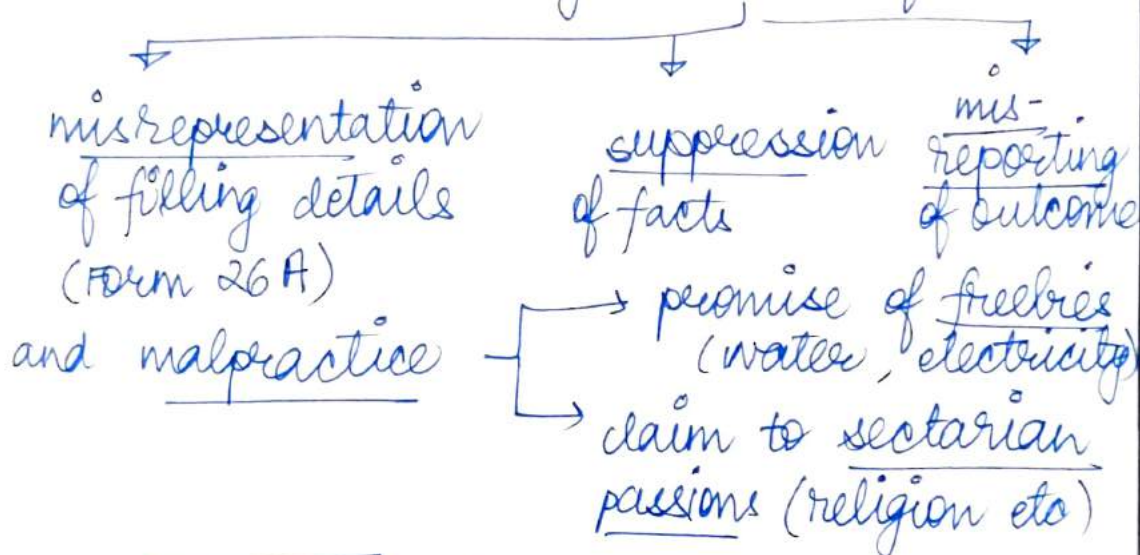 misrepresentation
of filling details
(Form 26A)
suppression
of facts
mis-
reporting
of outcome
and malpractice
promise of freebies
(water, electricity)
claim to sectarian
passions (religion etc)